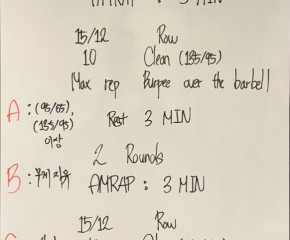 AMRAP : 3 MIN
15/12 Row
10 Clean (135/95)
Max rep Burpee over the barbell
A : (95/65), Rest 3 MIN
(135/95)
이상
2 Rounds
B : 무게 자유 AMRAP : 3 MIN
15/12 Row